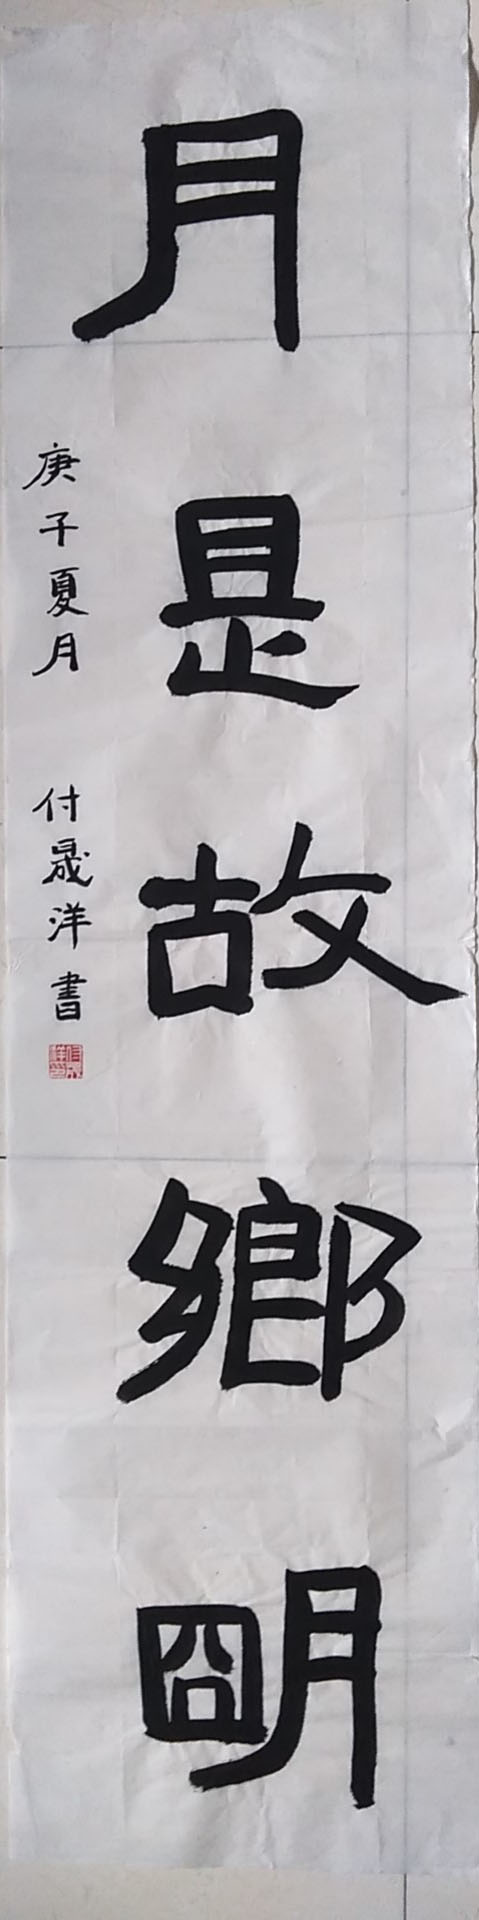 月是故鄉朙
庚子夏月 付晟洋書